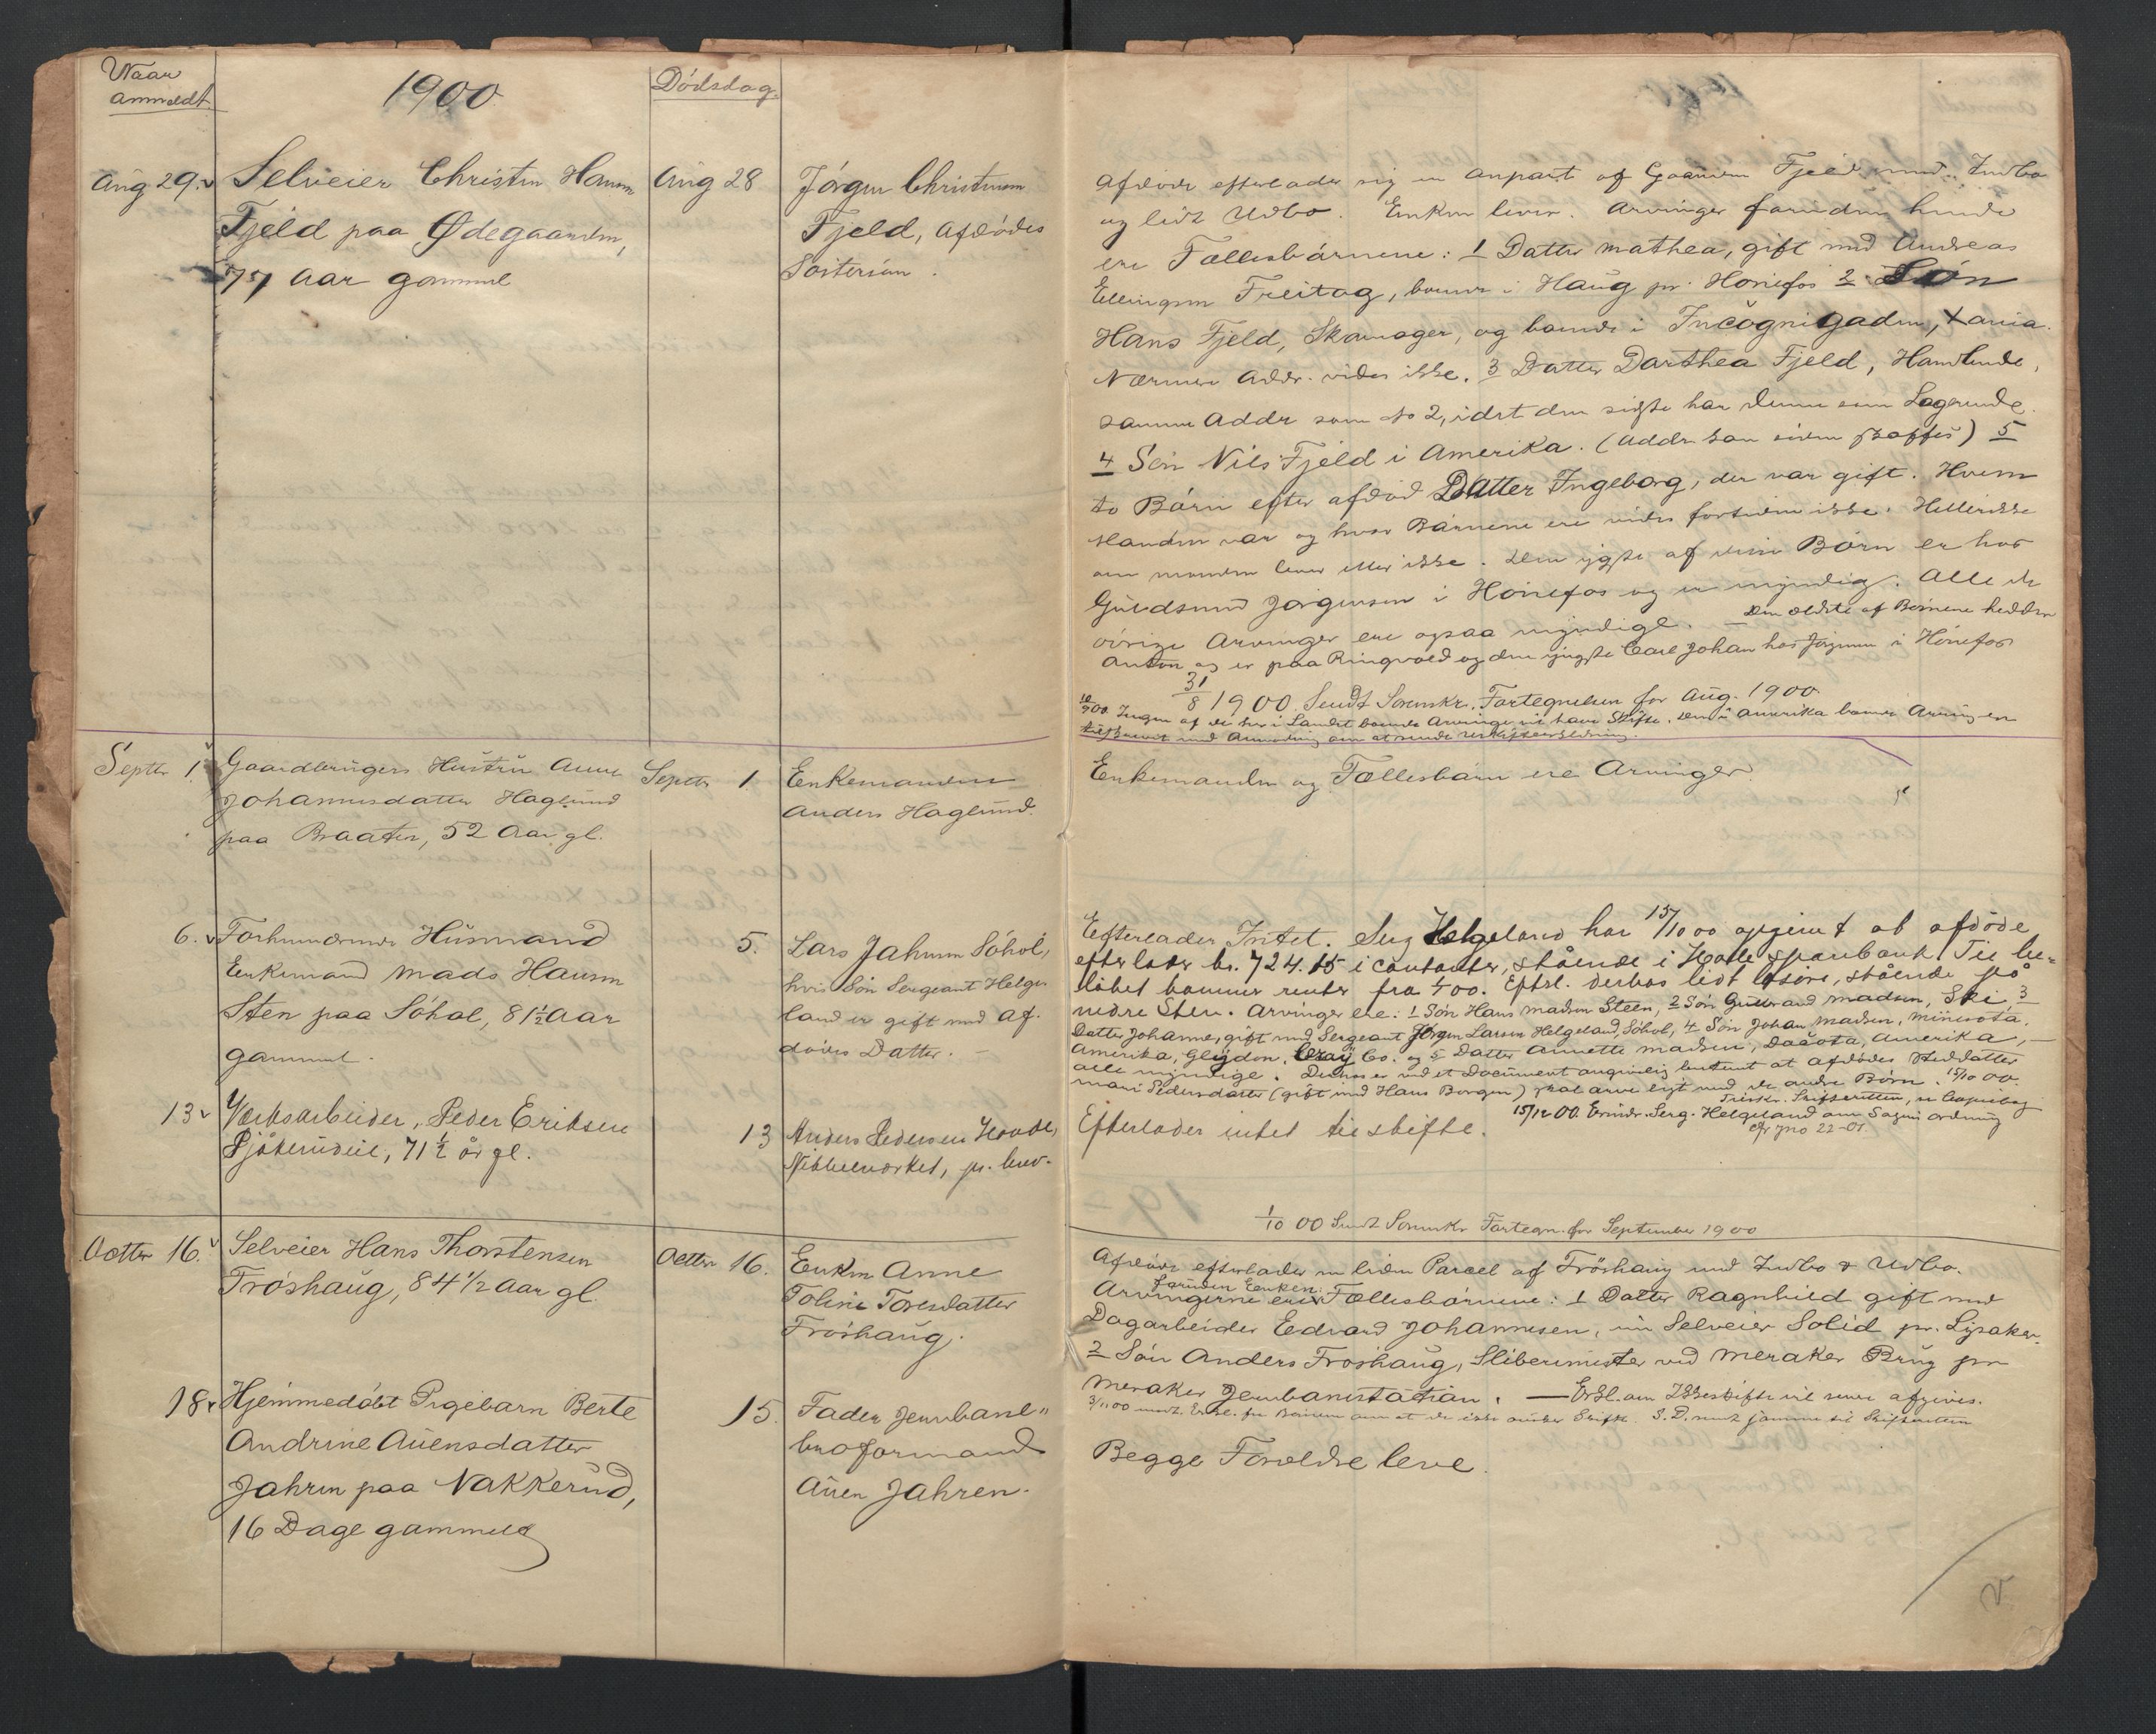 Naar
anmeldt.
1900
Dödsdag.
Aug 29.
Selveier Christen Hansen
Fjeld paa Ødegaarden,
77 Aar gammel
Aug 28
Jörgen Christensen
Fjeld, afdödes
Söstersön.
Afdöde efterlader sig en anpart af Gaarden Fjeld med Indbo
og lidt Udbo. Enken lever. Arvinger foruden hende
ere Fællesbörnene: 1 Datter Mathea, gift med Andreas
Ellingsen Freitag, boende i Haug pr. Hönefos 2 Sön
Hans Fjeld, Skomager, og boende i Incognigaden, Xania.
Nærmere Addr. vides ikke. 3 Datter Dorthea Fjeld, Handlende,
samme Addr som No 2, idet den sidste har denne som Logerende.
4 Sön Nils Fjeld i Amerika. (Addr. kan siden skaffes) 5
to Börn efter afdöd Datter Ingeborg, der var gift. Hvem
Manden var og hvor Börnene ere vides fortiden ikke. Hellerikke
om manden lever eller ikke. Den ygste af disse Börn er hos
Guldsmed Jörgensen i Hönefos og er myndig. Alle de
övrige Arvinger ere ogsaa myndige. — Den ældste af Börnene hedder
Anton og er paa Ringvold og den yngste Carl Johan hos Jörgensen i Hönefos
31/8 1900. Sendt Sorenskr. Fortegnelsen for Aug. 1900.
Ingen af de her i Landet boende Arvinger vil have Skifte. Den i Amerika boende Arving er
tilskrevet med Anmodning om at sende
Septbr 1.
Gaardbrugers Hustru Anne
Johannesdatter Haglund
paa Braaten, 52 Aar gl.
Septbr 1
Enkemanden
Anders Haglund.
Enkemanden og Fællesbarn ere Arvinger.
6.
Forhenværende Husmand
Enkemand Mads Hansen
Sten paa Söhol, 81½ Aar
gammel.
5.
Lars Jahnsen Söhol,
hvis Sön Sergeant Helge-
land er gift med Af-
dödes Datter. —
Efterlader Intet. Serg Helgeland har 15/10 00 opgivet at afdöde
efterlader kr. 724.15 i contanter, stående i Hole Sparebank. Til be-
löbet kommer renter fra 1/1 00. Efterl. derhos lidt lösöre, stående på
nedre Sten. Arvinger ere: 1 Sön Hans Madsen Steen, 2 Sön Gulbrand Madsen, Ski, 3
Datter Johanne, gift med Sergeant Jörgen Larsen Helgeland, Söhol, 4 Sön Johan Madsen, Minesota,
Amerika, Glydon, Clay Co. og 5 Datter Annette Madsen, Dacota, Amerika, —
alle myndige. Derhos er ved et Document angivelig bestemt at afdödes Steddatter
Mari Pedersdatter (gift med Hans Borgen) skal arve ligt med de andre Börn. 15/10 00.
15/12 00. Erindr. Serg. Helgeland om Sagens ordning
13
Verksarbeider, Peder Eriksen
71½ år gl.
13
Anders Pedersen Hovde,
Nikkelverket, pr. brev.
Efterlader intet til skifte.
1/10 00 Sendt Sorenskr Fortegn. for September 1900
Octbr 16.
Selveier Hans Thorstensen
Fröshaug, 84 1/2 Aar gl.
Octbr 16.
Enken Anne
Toline Toresdatter
Fröshaug.
Afdöde efterlader en liden Parcel af Fröshaug med Indbo & Udbo.
foruden Enken:
Arvingerne ere Fællesbörnene: 1 Datter Ragnhild gift med
Dagarbeider Edvard Johannesen, Selveier Solid pr. Lysaker.
2 Sön Anders Froshaug, Slibemester ved Meraker Brug pr
Meraker Jernbanestation. — Erkl. om Skifte vil senere afgives.
18
Hjemmedöbt Pigebarn Berte
Andrine Auensdatter
Jahren paa Nakkerud,
16 Dage gammel
15.
Fader Jernbane-
broformand
Auen Jahren.
Begge Forældre leve.